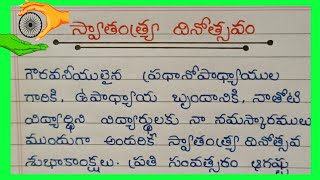 స్వాతంత్ర్య దినోత్సవం
గౌరవనీయులైన ప్రధానోపాధ్యాయుల
గారికి, ఉపాధ్యాయ బృందానికి, నాతోటి
విద్యార్థిని విద్యార్థులకు నా నమస్కారములు
ముందుగా అందరికీ స్వాతంత్ర్య దినోత్సవ
శుభాకాంక్షలు. ప్రతి సంవత్సరం ఆగష్టు